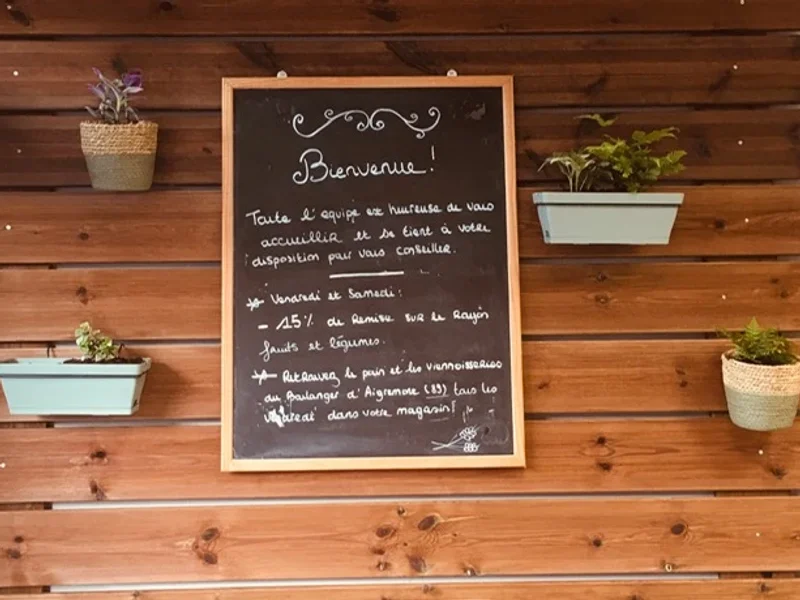 Bienvenue !
Toute l'equipe est heureuse de vous
accueillir et se tient à votre
disposition pour vous conseiller.
* Vendredi et Samedi :
- 15% de Remise sur le Rayon
fruits et légumes.
* Retrouvez le pain et les viennoiseries
du Boulanger d'Aigremont (89) tous les
vendredi dans votre magasin !